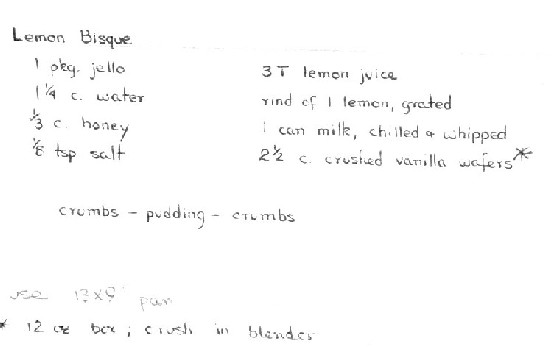 Lemon Bisque
1 pkg. jello
1 1/4 c. water
1/3 c. honey
1/8 tsp salt
3 T lemon juice
rind of 1 lemon, grated
1 can milk, chilled & whipped
2 1/2 c. crushed vanilla wafers*
crumbs - pudding - crumbs
use 13x9" pan
* 12 oz box; crush in blender